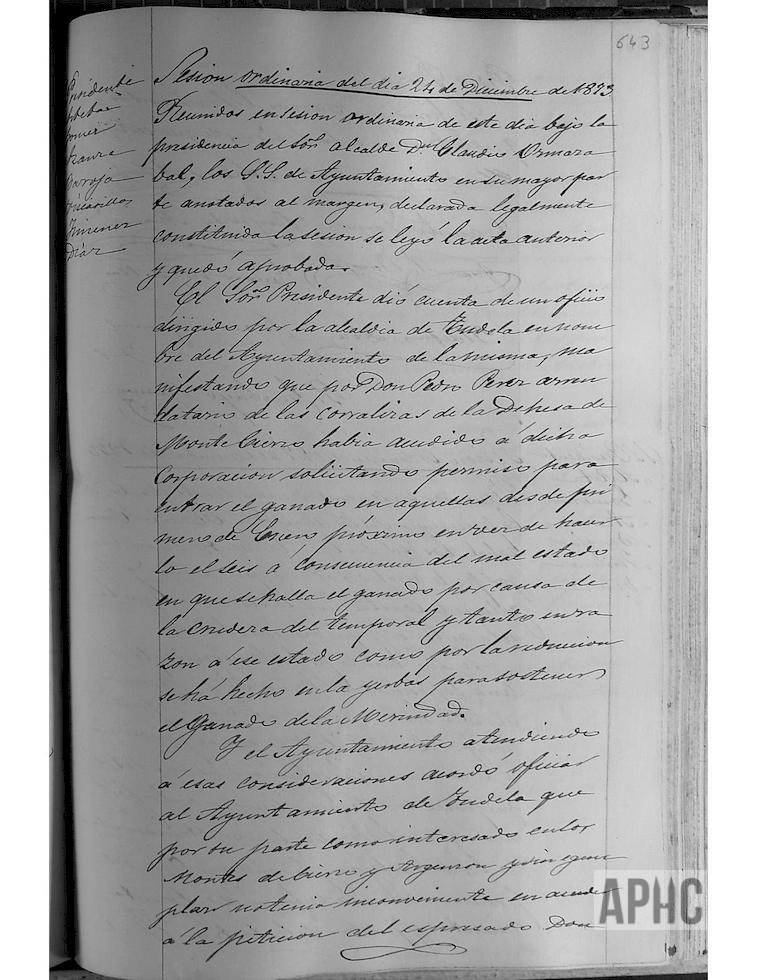 643
Sesion ordinaria del dia 24 de Diciembre de 1873
Presidente
Gomez
Zaura
Baroja
Jimenez
Diaz
Reunidos en sesion ordinaria de este dia bajo la
presidencia del Sor. Alcalde Dn. Claudio Ormaza
bal, los S.S. de Ayuntamiento en su mayor par
te anotados al margen, declarada legalmente
constituida la sesion se leyó la acta anterior
y quedó aprobada.
El Sor. Presidente dió cuenta de un oficio
dirigido por la alcaldia de Tudela en nom
bre del Ayuntamiento de la misma, ma
nifestando que por Don Pedro Perez arren
datario de las corralizas de la Dehesa de
Monte Cierzo habia acudido á dicha
Corporacion solicitando permiso para
entrar el ganado en aquellas desde pri
mero de Enero próximo en vez de hacer
lo el seis á consecuencia del mal estado
en que se halla el ganado por causa de
la crudeza del temporal y tanto en ra
zon á ese estado como por la reduccion
se há hecho en la yerbas para sostener
el Ganado de la Merindad.
Y el Ayuntamiento atendiendo
á esas consideraciones acordó oficiar
al Ayuntamiento de Tudela que
por su parte como interesado en los
Montes de Cierzo y Argenzon y sin egem
plar no tenia inconveniente en acceder
á la peticion del espresado Don
APHC